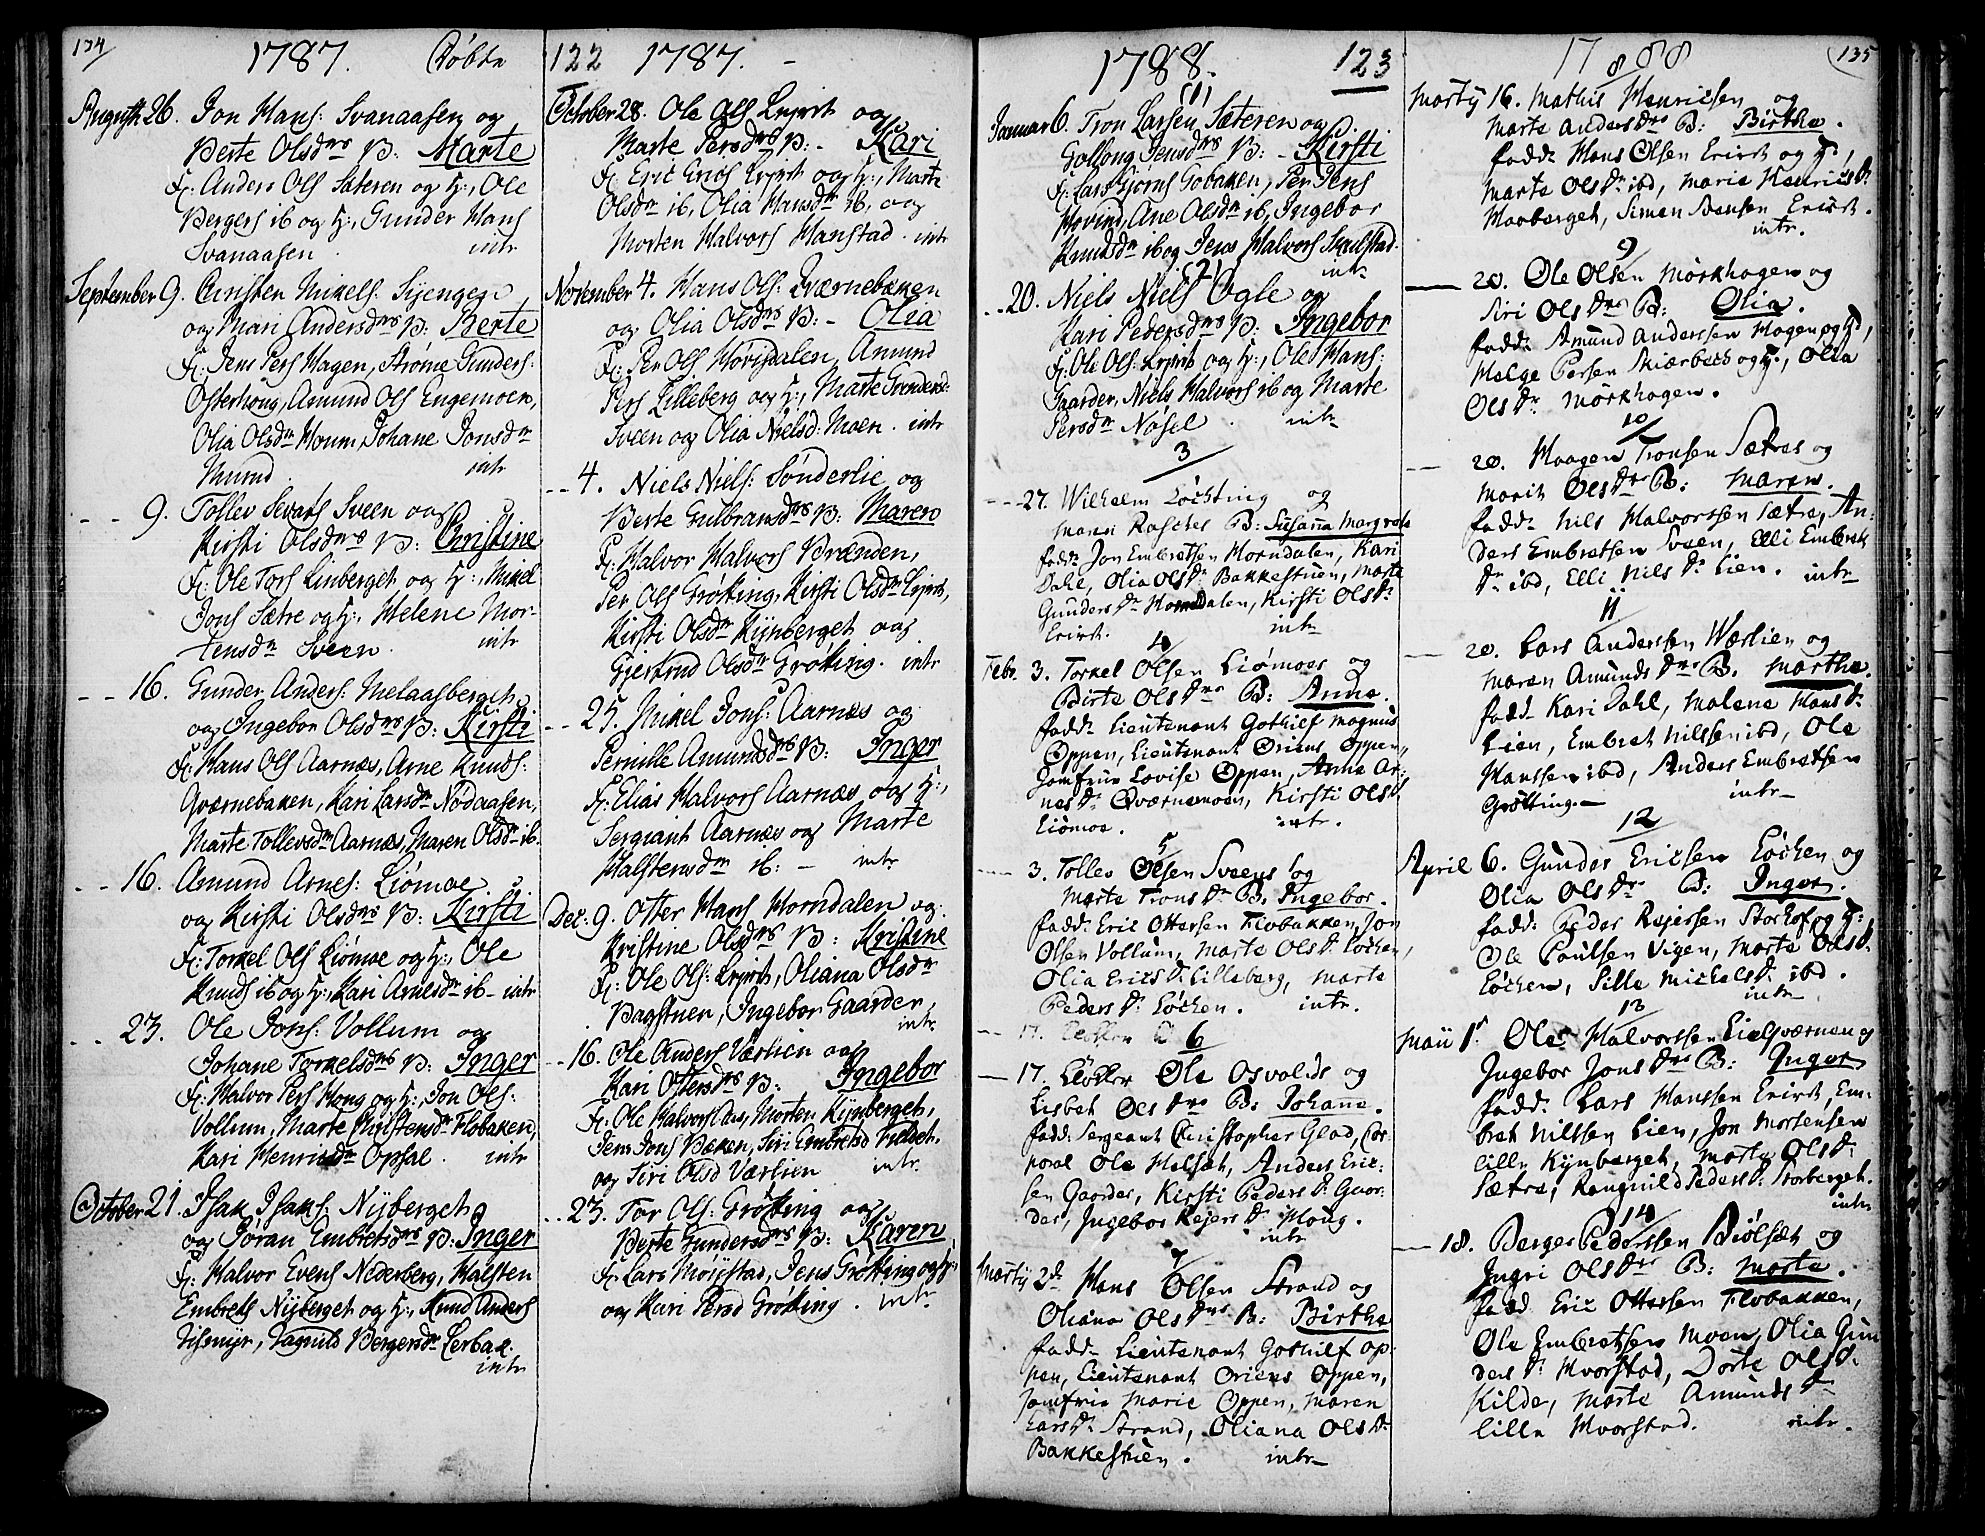 134 1787. Døbte
August 26. Jon Hans: Svanaasen og
Berte Olsdrs B: Marte
F: Anders Ols Sateren og H:, Ole
Bergers ib og H:, Gunder Hans
Svanaasen. intr
September 9. Christen Mikels:
og Mari Andersdrs B: Berte
F: Jens Pers Hagen, Strøme Gunders:
Osterhoug, Amund Ols Engemoen,
Olia Olsdr Houm, Johane Jonsdr
intr
9. Tollev Ivers Sveen og
Kirsti Olsdrs B: Christine
F: Ole Tors Linberget og H:, Mikel
Jons Sætre og H:, Helene Mor-
tensdr Sveen. intr
16. Gunder Anders: Melaasberget
og Ingebor Olsdrs B: Kirsti
F: Hans Ols Aarnæs, Arne Knuds:
Qværnebaken, Kari Larsdr Nødaasen,
Marte Tollevsdr Aarnæs, Maren Olsdr ib.
16. Amund Arnes: Liømoe
og Kirsti Olsdrs B: Kirsti
F: Torkel Ols Liømoe og H:, Ole
Knuds ib og H:, Kari Arnesdr ib - intr
23. Ole Jons: Vollum og
Johane Torkelsdrs B: Inger
F: Halvor Pers Houg og H:, Jon Ols:
Vollum, Marte Mortensdr Flobaken,
Kari Henriksdr Opsal. intr
October 21. Isak Isaks: Nyberget
og Søran Embretsdrs B: Inger
F: Halvor Evens Nederberg, Halsten
Embrets Nyberget og H:, Knud Anders
Bergersdr Lerbak.
intr
122 1787. -
October 28. Ole Ols og
Marte Persdrs B: - Kari
F: Eric Erics og H:, Marte
Olsdr ib, Olia Hansdr ib, og
Morten Halvors Hanstad. intr
November 4. Hans Ols: Qværnebaken
og Olia Olsdrs B: - Olia
F: Per Ols Horndalen, Amund
Pers Lilleberg og H:, Marte Gunders:
Sveen og Olia Nielsd: Moen. intr
4. Niels Niels: Sønderlie og
Berte Gulbransdrs B: Maren
F: Halvor Halvors Brænden,
Per Ols Grøtting, Kirsti Olsdr
Kirsti Olsdr Kynberget og
Gjertrud Olsdr Grøtting. intr
25. Mikel Jons: Aarnæs og
Pernille Amundsdrs B: Inger
F: Elias Halvors Aarnæs og H:,
Sergiant Aarnæs og Marte
Halstensdr ib: - intr
Dec: 9. Otter Hans Horndalen og
Kristine Olsdrs B: Kristine
F: Ole Ols: Oliana Olsdr
Bagstuen, Ingebor Gaarder,
intr
16. Ole Anders Værlien og
Kari Ottersdrs B: Ingebor
F: Ole Halvors Morten Kynberget,
Jens Jons Baken, Siri Embretsd
og Siri Olsd Værlien intr
23. Tor Ols: Grøtting og
Berte Gundersdrs B: Karen
F: Lars Jens Grøtting og H:
og Kari Persd Grøtting. intr
1788. 123
(1)
Januar 6. Tron Larsen Sæteren og
Gollong Jensdrs B: - Kirsti
F: Lars Gobaken, Per Jens
Hovind, Ane Olsdr ib, Ingebor
Knudsdr ib og Jens Halvors
(2) intr
20. Niels Niels Ogle og
Kari Pedersdrs B: Ingebor
F: Ole Ols: og H:, Ole Hans:
Gaarder, Niels Halvors ib og Marte
Persdr Nøsel. intr
3
27. Wilhelm Løchting og
Maren B: Susana Margrete
fadd: Jon Embretsen Horndalen, Kari
Dahl, Olia Ols Dr Bakkestuen, Marte
Gunders Dr Horndalen, Kirsti Ols Dr
intr
4
Febr. 3. Torkel Olsen Liømoes og
Birte Ols Drs B: Anne.
fadd: Lieutenant Gothilf Magnus
Oppen, Lieutenant Oppen,
Jomfrue Lovise Oppen, Anne Ar-
nes Dr Qværnemoen, Kirsti Ols Dr
Liømoe. intr.
5
3. Tollev Olsen Sveens og
Marte Trons Dr B. Ingebor.
fadd: Eric Ottersen Flobakken, Jon
Olsen Vollum, Marte Ols Dr Lochen,
Olia Erics Dr Lilleberg, Marte
Peders Dr Løchen. intr.
6
17. Ole Osvalds og
Lisbet Ols Drs B: Johane.
fadd: Sergeant Christopher Glad, Cor-
poral Ole Helsæt, Anders Eric-
sen Gaarder, Kirsti Peders Dr Gaar-
der, Ingebor Rejers Dr Houg.
intr
7
Martij 2d. Hans Olsen Strand og
Oliana Ols Drs B: Birthe
fadd: Lieutenant Gothilf Op-
pen, Lieutenant Oppen,
Jomfrue Marie Oppen, Maren
Lars Dr Strand, Oliana Ols Dr
Bakkestuen. intr
1788 135
8
Martij 16. Mathis Henricsen og
Marte Anders Drs B: Birthe.
fadd: Hans Olsen og H:,
Marte Ols Dr ibd, Marie Henrics Dr
Morberget, Simen
intr.
9
20. Ole Olsen Mørkhagen og
Siri Ols Drs B: Olia.
fadd: Amund Anderssen Hagen og H:,
Helge Persen Skiærbech og H:, Olia
Ols Dr Mørkhagen.
10
20. Haagen Tronsen Sætres og
Marit Ols Drs B: Maren.
fadd: Nils Halvorssen Sætre, An-
ders Embretsen Sveen, Elli Embrets
Dr ibd, Elli Nils Dr Lien. intr
11
20. Lars Anderssen Værlien og
Maren Amunds Drs B. Marthe.
fadd: Kari Dahl, Malene Hans Dr
Lien, Embret Nilssen ibd, Ole
Hanssen ibd, Anders Embretsen
Grøtting. intr
12
April 6. Gunder Ericsen Løchen og
Olia Ols Drs B: Inger.
fadd: Peder Rejersen Storhof og H:
Ole Poulsen Vigen, Marte Ols Dr
Løchen, Sille Michels Dr ibd.
intr
13
Maii 1. Ole Halvorssen Lieqværnen og
Ingebor Jons Drs B: Inger
fadd: Lars Hanssen Em-
bret Nilssen Lien, Jon Mortensen
Lille Kynberget, Marte Ols Dr
Sætre, Rangnild Peders Dr Storberget.
intr
14
18. Berger Pederssen Biølsæt og
Ingri Ols Drs B: Marte.
fadd: Eric Ottersen Flobakken,
Ole Embretsen Moen, Olia Gun
ders Dr Hvorstad, Dorte Ols Dr
Kilde, Marte Amunds Dr
Lille Hvorstad. intr.